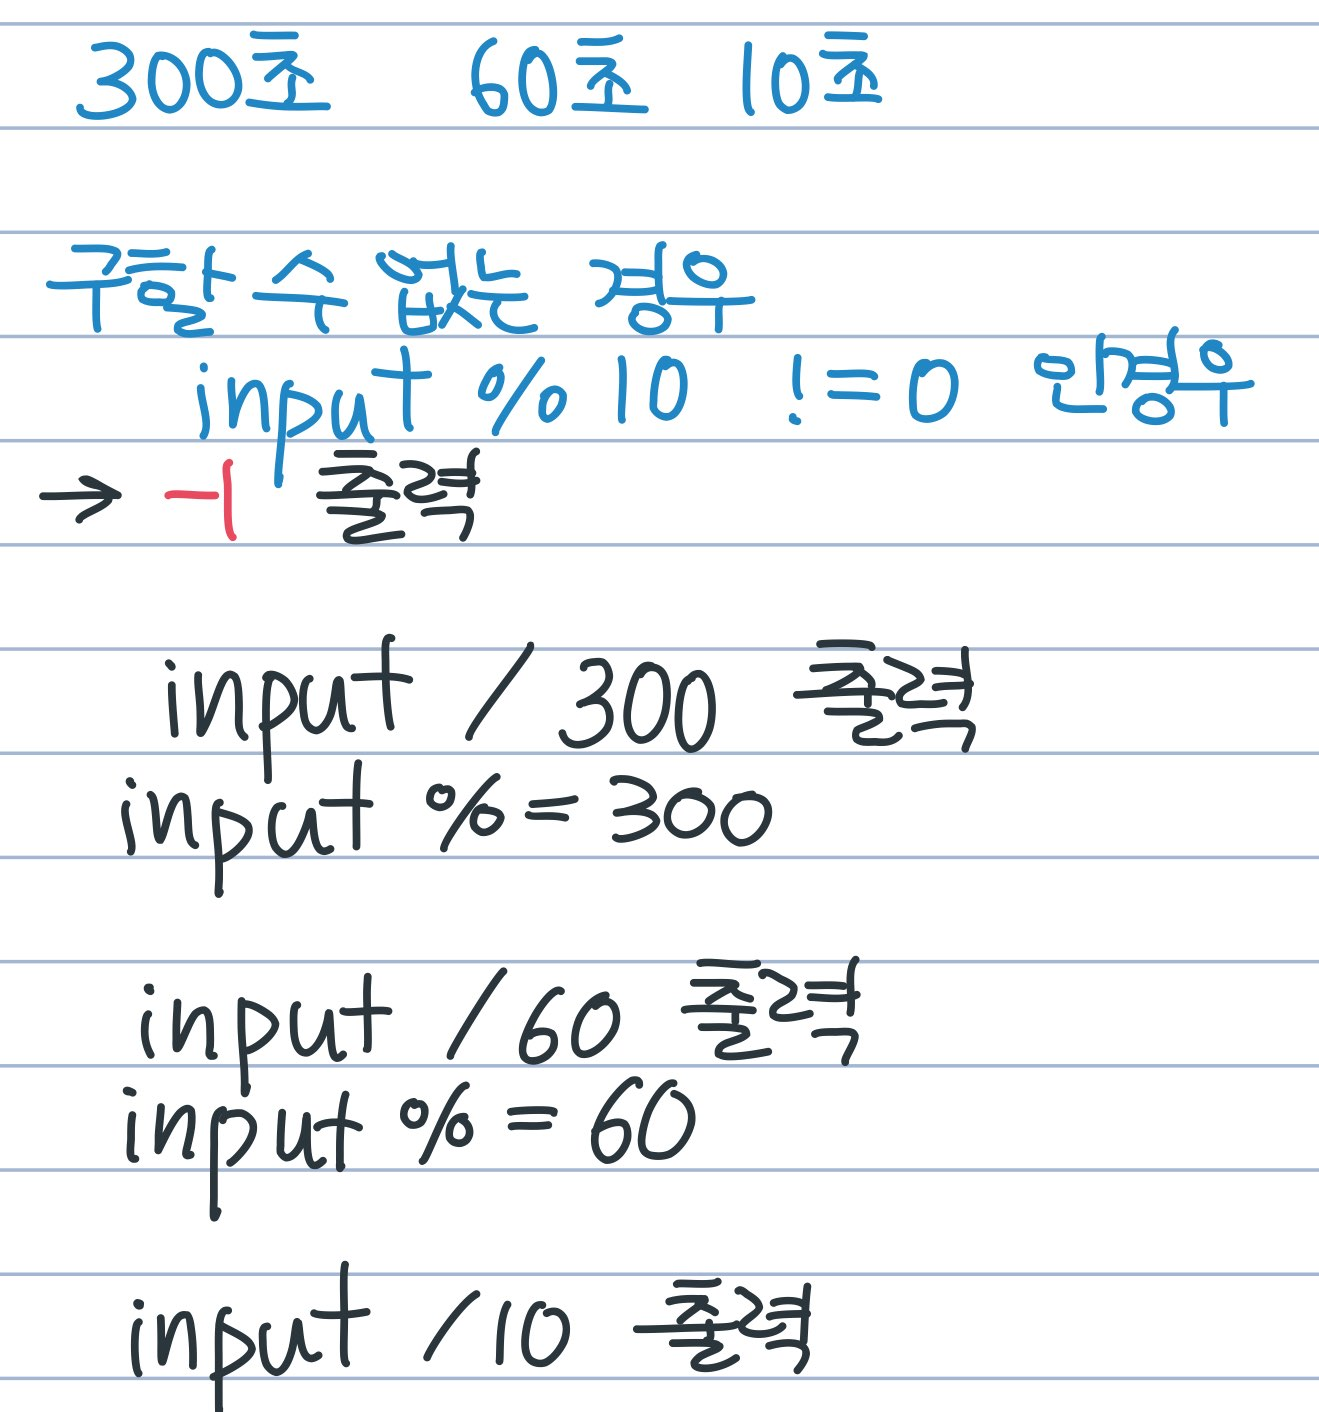 300초 60초 10초
구할 수 없는 경우
input % 10 != 0 인경우
→ -1 출력
input / 300 출력
input %= 300
input / 60 출력
input %= 60
input / 10 출력